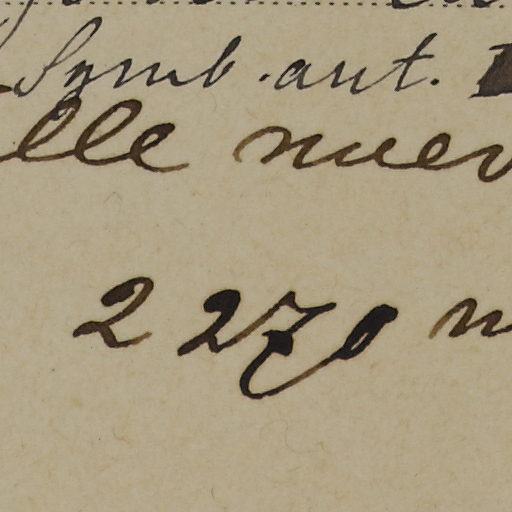 Symb. ant.
lle nuev
2270 m